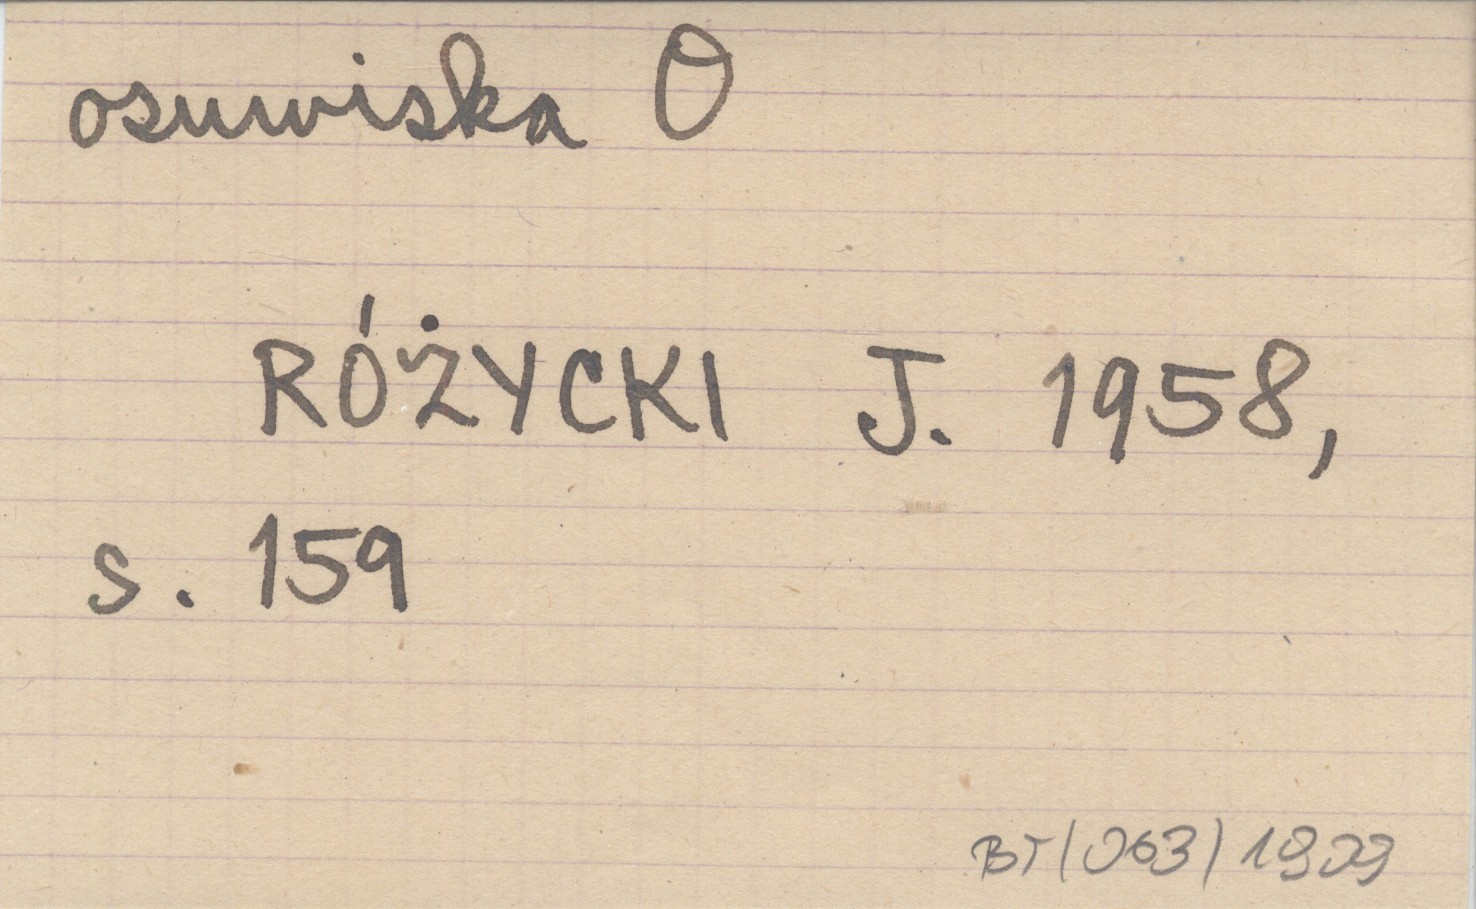 osuwiska O
RÓŻYCKI J. 1958,
s. 159
BT/063/1909